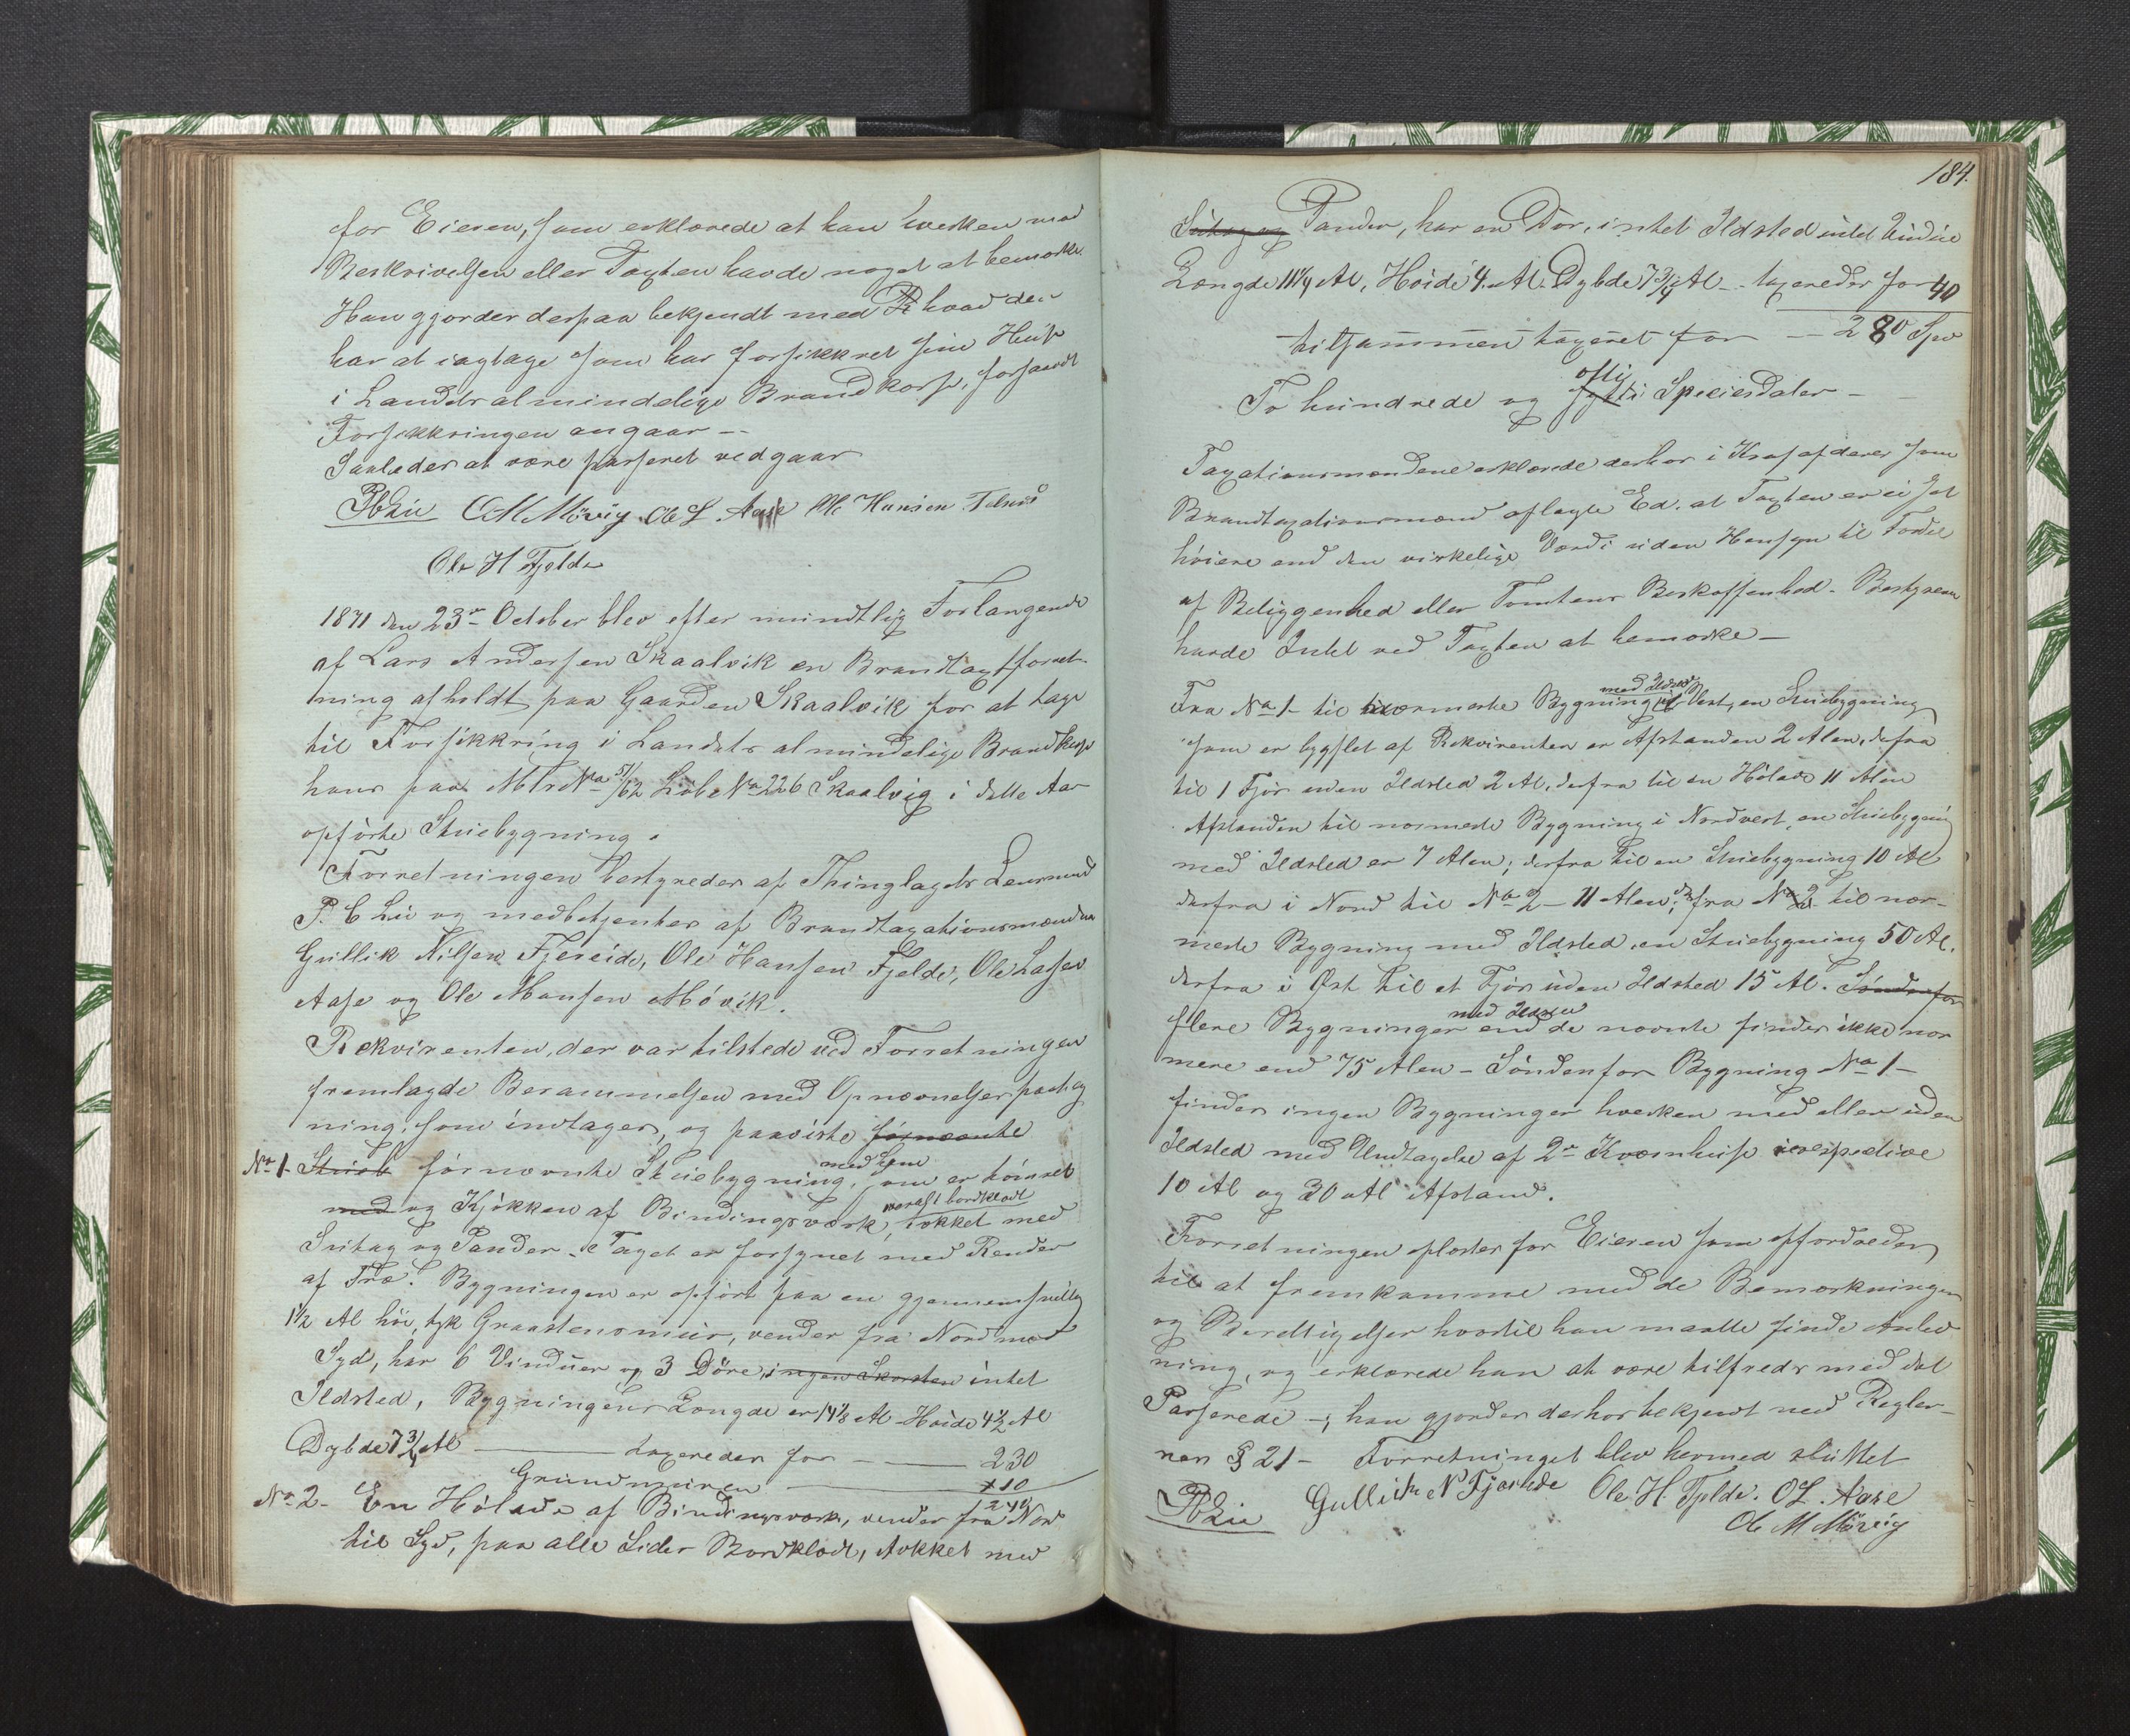 for Eieren, som erklærede at han hverken mod
Beskrivelsen eller Taxten havde noget at bemærke
Han gjordes derpaa bekjendt med hvad den
har at iagtage som har forsikkret sine Huse
i Landets almindelige Brandkasse, forsaavidt
Forsikkringen angaar --
Saaledes at være passeret vedgaar
PbLie O M Mövig Ole L. Aase Ole Hansen Telnes
Ole H Fjelde
1871 den 23de October blev efter mundtlig Forlangende
af Lars Andersen Skaalvik en Brandtaxtforret-
ning afholdt paa Gaarden Skaalvik for at tage
til Forsikkring i Landets almindelige Brandkasse
hans paa Mtr No 51/62 Löbe No 226 Skaalvig i dette Aar
opförte Stuebygning.
Forretningen bestyredes af Thinglagets Lensmand
P. b Lie og medbetjentes af Brandtaxationsmændene
Gullik Nilsen Fjereide, Ole Hansen Fjelde, Ole Lassen
Aase og Ole Monsen Mövik.
Rekvirenten, der var tilstede ved Forretningen
fremlagde Berammelsen med Opnævnelsespaateg
ning, som indtages, og paaviste fornævnte
No 1 - Stueb fornævnte Stuebygning, som er tömret
med Lem
med og Kjökken af Bindingsværk, tækket med
Sutag og Pander. Taget er forsynet med Render
af Træ. Bygningen er opfört paa en gjennemsnitlig
1½ Al höi, tyk Graastensmuur, vender fra Nord mod
Syd, har 6 Vinduer og 3 Döre, ingen Skorsten intet
Ildsted, Bygningens Længde er 14⅛ Al - Höide 4½ Al
Dybde 7¾ Al - taxeredes for - 230
Grundmuren - 10
240
No 2 - En Hölade af Bindingsværk, vender fra Nord
til Syd, paa alle Sider Bordklædt, tækket med
184.
Sutag og Pander, har en Dör, intet Ildsted intet Vindue
Længde 11¼ Al, Höide 4. Al. Dybde 7¾ Al - taxeredes for 40
tilsammen taxeret for - 280 Spd
otti
To hundrede og Speciesdaler -
Taxationsmændene erklærede derhos i Kraf af deres som
Brandtaxationsmænd aflagte Ed. at Taxten er ei sat
höiere end den virkelige Værdi uden Hensyn til Fordel
af Beliggenhed eller Tomtens Beskaffenhed. Bestyreren
havde Intet ved Taxten at bemærke -
med Ildsted
Fra No 1 - til nærmeste Bygning i Vest, en Stuebygning
som er bygslet af Rekvirenten er Afstanden 2 Alen, derfra
til 1 Fjös uden Ildsted 2 Al, derfra til en Hölade 11 Alen
Afstanden til nærmeste Bygning i Nordvest, en Stuebygning
med Ildsted er 7 Alen; derfra til en Stuebygning 10 Al
derfra i Nord til No 2 - 11 Alen; fra No 2 til nær-
meste Bygning med Ildsted, en Stuebygning 50 Al.
derfra i Öst til et Fjös uden Ildsted 15 Al. Söndenfor
med Ildsted
flere Bygninger end de nævnte findes ikke nær
mere end 75 Alen - Söndenfor Bygning No 1 -
findes ingen Bygninger hverken med eller uden
Ildsted med Undtagelse af 2de Kværnhuse respective
10 Al og 30 Al Afstand.
Forretningen oplæstes for Eieren som opfordredes
til at fremkomme med de Bemærkninger
og Berettigelser hvortil han maatte finde Anled
ning, og erklærede han at være tilfreds med det
Passerede -; han gjordes derhos bekjendt med Regler-
nes § 21 - Forretninget blev hermed sluttet
PbLie Gullich N Fjereide Ole H. Fjelde. OL. Aase
Ole M Mövig